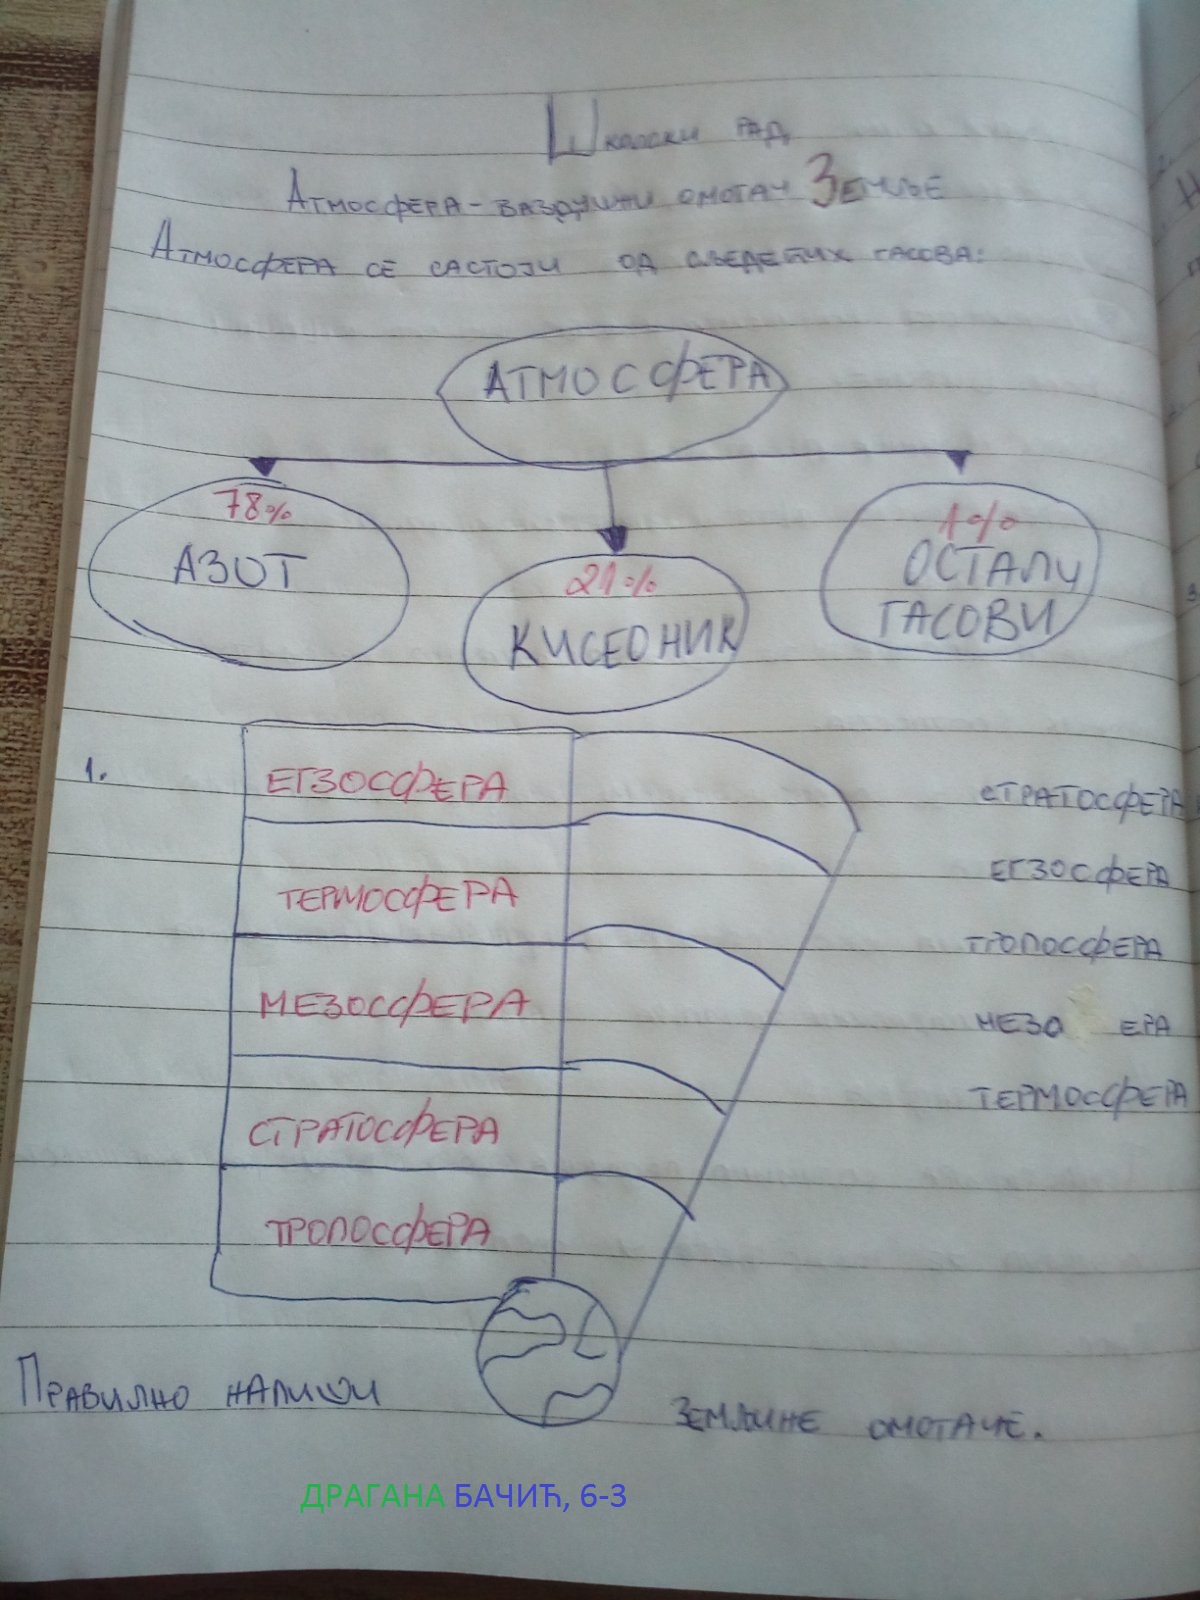 Школски рад
Атмосфера - ваздушни омотач Земље
Атмосфера се састоји од сљедећих гасова:
АТМОСФЕРА
78%
АЗОТ
21%
КИСЕОНИК
1%
ОСТАЛИ
ГАСОВИ
1.
ЕГЗОСФЕРА
ТЕРМОСФЕРА
МЕЗОСФЕРА
СТРАТОСФЕРА
ТРОПОСФЕРА
СТРАТОСФЕРА
ЕГЗОСФЕРА
ТРОПОСФЕРА
МЕЗО ЕРА
ТЕРМОСФЕРА
Правилно напиши Земљине омотаче.
ДРАГАНА БАЧИЋ, 6-3